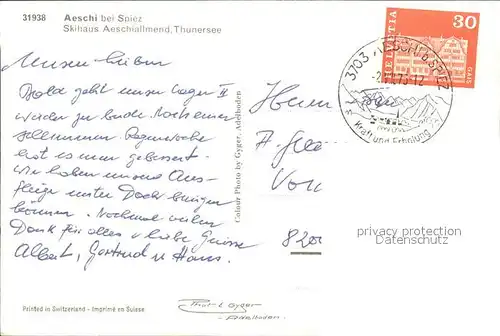 31938 Aeschi bei Spiez
Skihaus Aeschiallmend, Thunersee
Unsere lieben
Bald geht unser Lager II
wieder zu Ende. Nach einer
schlimmen Regenwoche
hat es nun gebessert.
Wir haben unsere Aus-
flüge unter Dach bringen
können. Nochmals vielen
Dank für alles u liebe Grüsse
Albert, Gertrud u Hans.
Colour Photo by Gyger, Adelboden
HELVETIA
30
GAIS
3703 AESCHI b. SPIEZ
73-12
Kraft und Erholung
820
privacy protection
Datenschutz
Printed in Switzerland - Imprimé en Suisse
Phot. E. Gyger
Adelboden